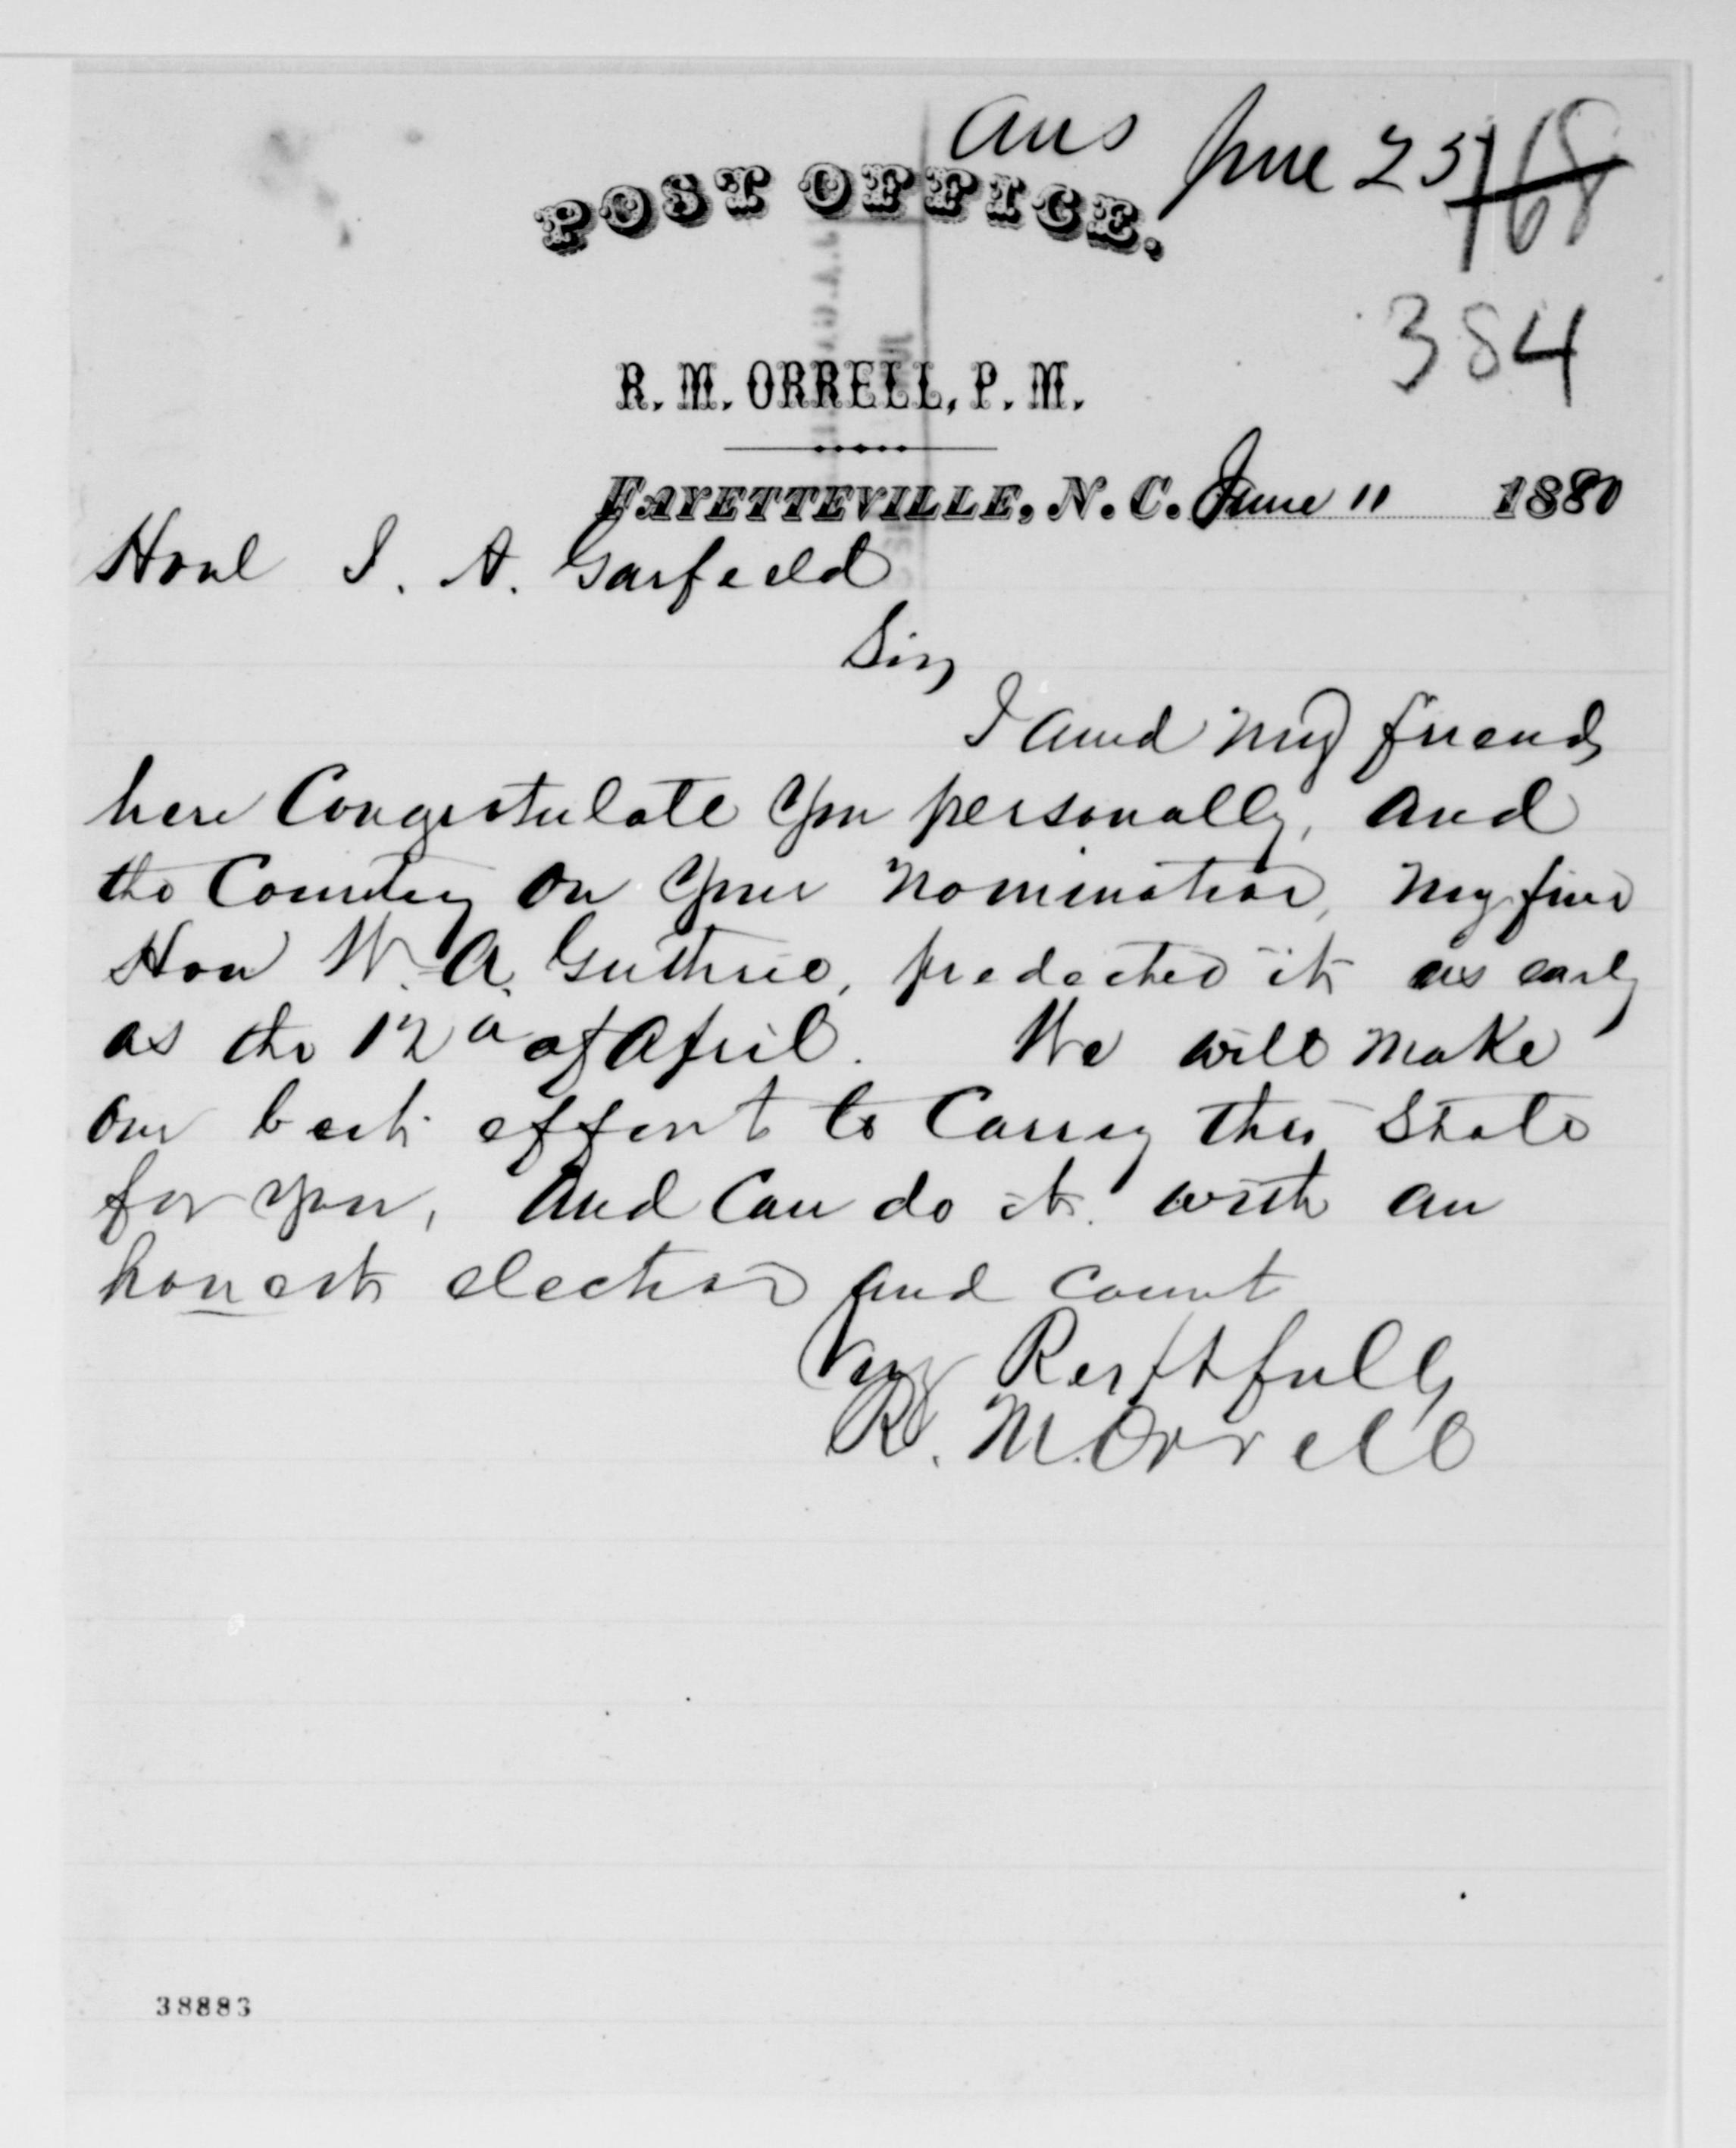 Ans June 25
168
POST OFFICE.
384
R. M. ORRELL, P. M.
FAYETTEVILLE, N. C. June 11 1880
Honl J. A. Garfield
Sir,
I and my friends
here Congratulate you personally, and
the Country on your nomination, my
Hon W. A. Guthrie, predected it as early
as the 12 of April. We will make
our best effort to Carry this State
for you, and Can do it. with an
honest election and count
Very Resptfully
R. M. Orrell
38883